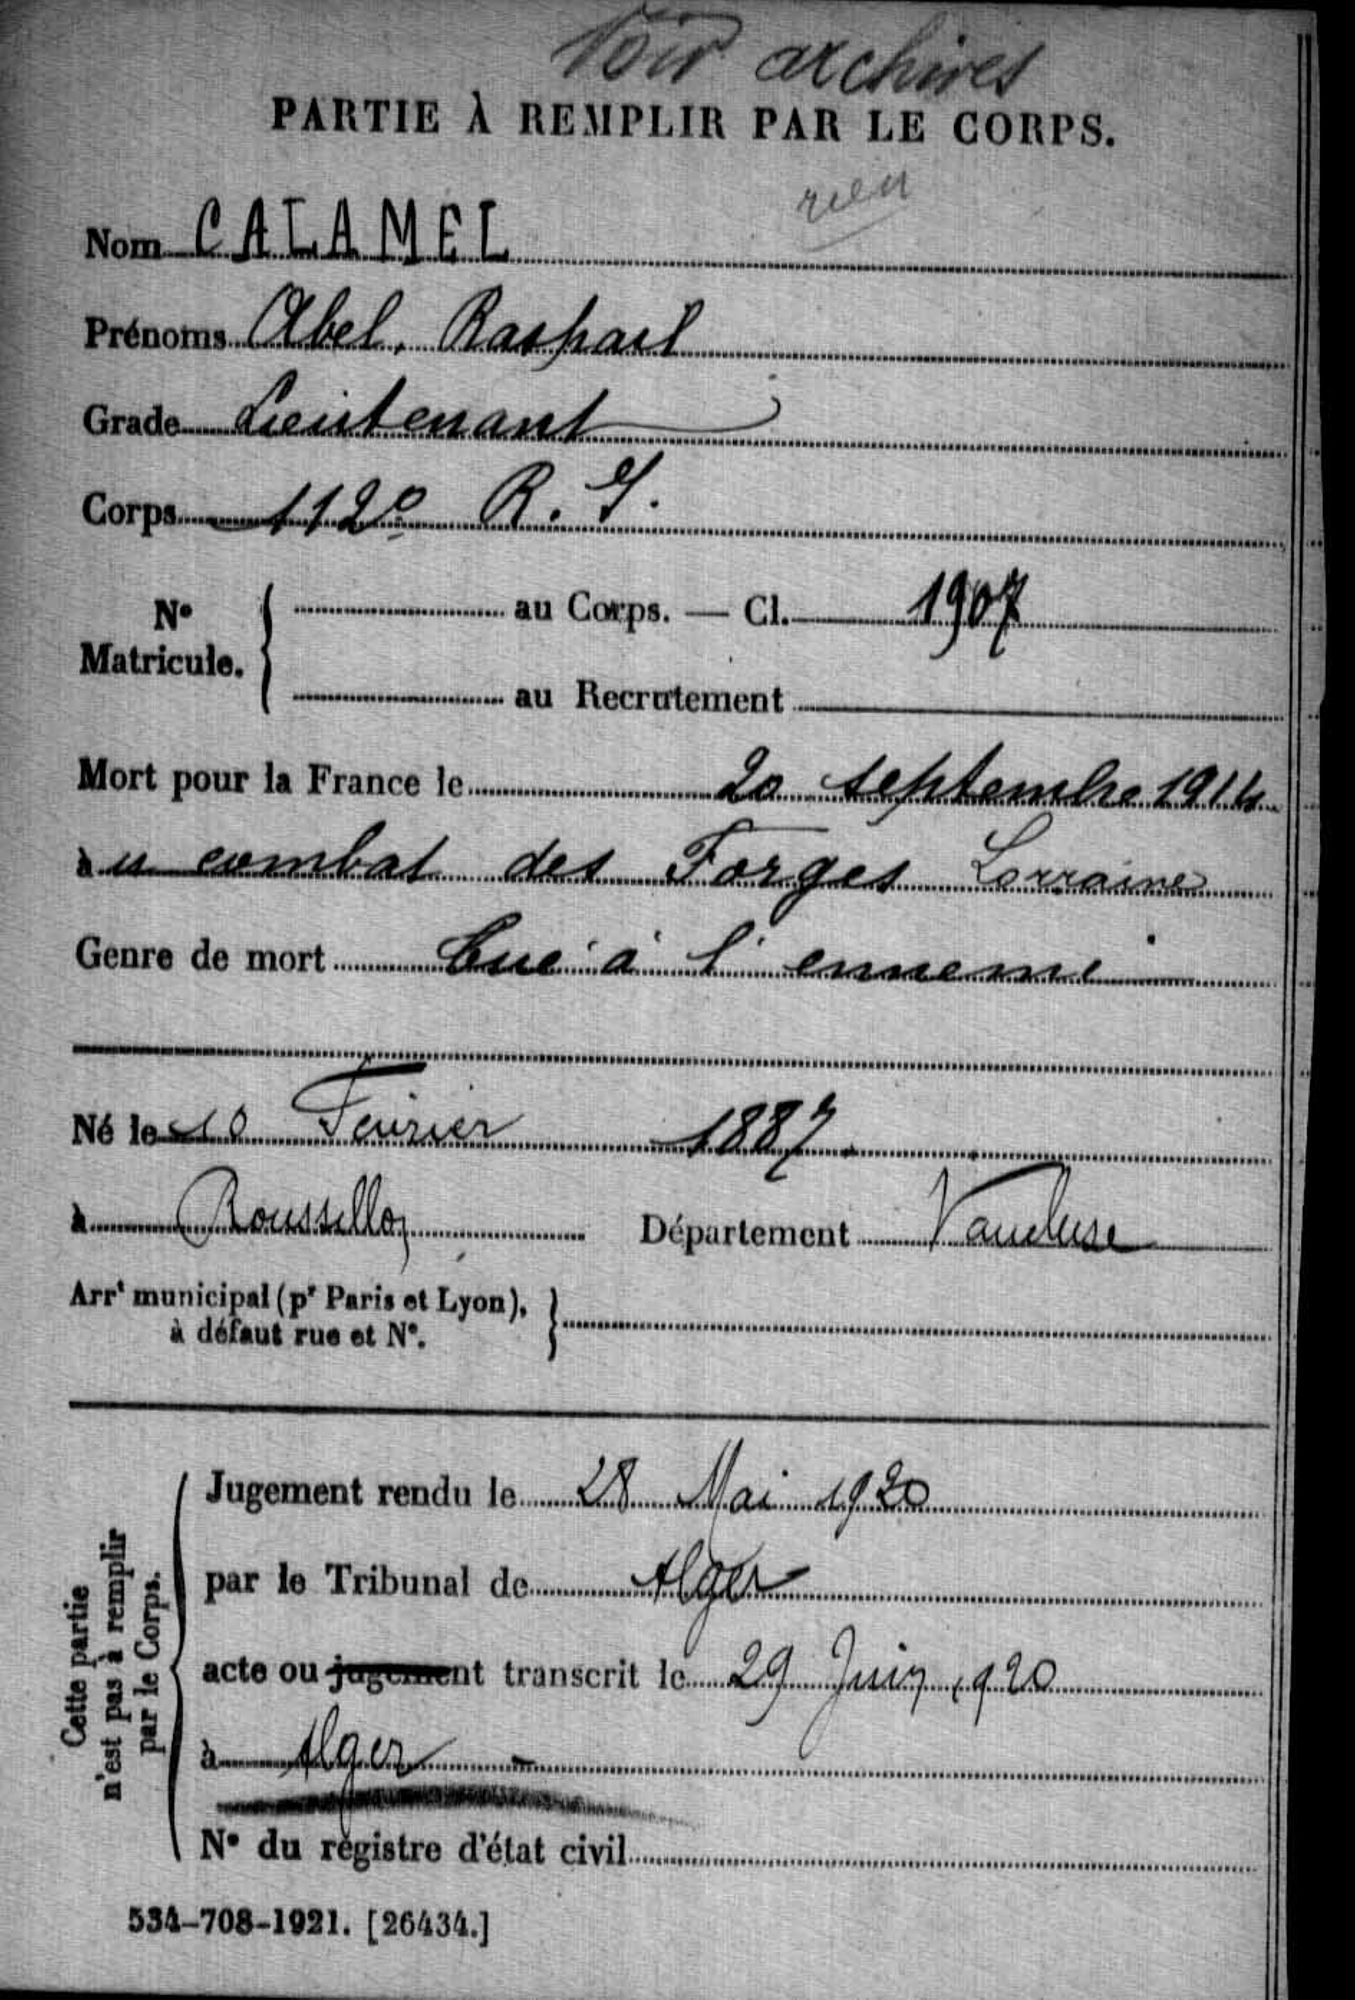 Voir archives
PARTIE À REMPLIR PAR LE CORPS.
rien
Nom CALAMEL
Prénoms Abel, Raphael
Grade Lieutenant
Corps 112e R. I.
No Matricule. { au Corps. — Cl. 1907
au Recrutement
Mort pour la France le 20 septembre 1914
au combat des Forges Lorraine
Genre de mort Tué à l'ennemi
Né le 10 Février 1887.
à Roussillon Département Vaucluse
Arrt municipal (pr Paris et Lyon), }
à défaut rue et No.
Cette partie
n'est pas à remplir
par le Corps.
Jugement rendu le 28 Mai 1920
par le Tribunal de Alger
acte ou jugement transcrit le 29 Juin 1920
à Alger -
No du registre d'état civil
534-708-1921. [26434.]